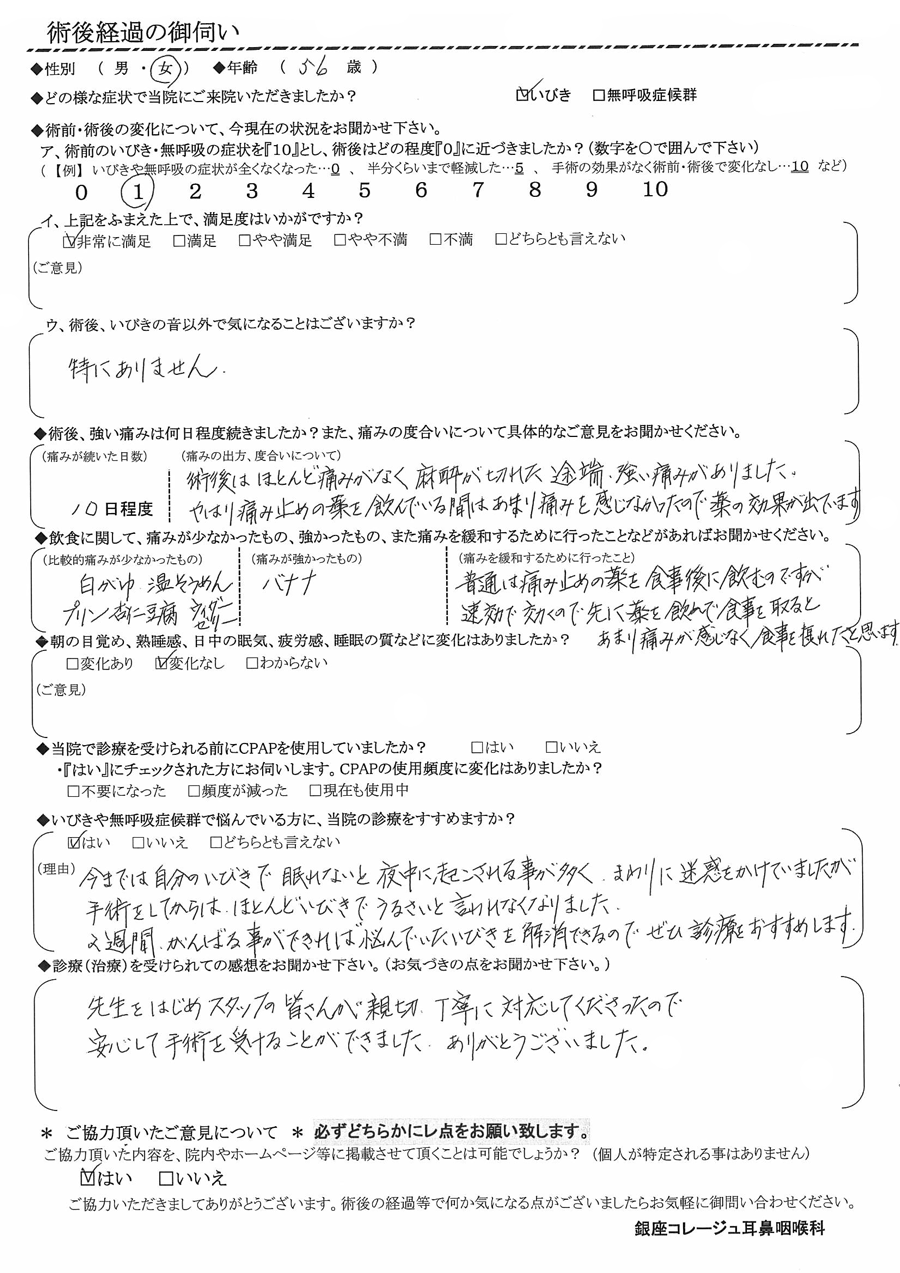 術後経過の御伺い
◆性別 ( 男 ・ 女 ) ◆年齢 ( 56 歳 )
◆どの様な症状で当院にご来院いただきましたか? ☑いびき □無呼吸症候群
◆術前・術後の変化について、今現在の状況をお聞かせ下さい。
ア、術前のいびき・無呼吸の症状を『10』とし、術後はどの程度『0』に近づきましたか?(数字を○で囲んで下さい)
(【例】 いびきや無呼吸の症状が全くなくなった…0 、 半分くらいまで軽減した…5 、 手術の効果がなく術前・術後で変化なし…10 など)
0 ① 2 3 4 5 6 7 8 9 10
イ、上記をふまえた上で、満足度はいかがですか?
☑非常に満足 □満足 □やや満足 □やや不満 □不満 □どちらとも言えない
(ご意見)
ウ、術後、いびきの音以外で気になることはございますか?
特にありません.
◆術後、強い痛みは何日程度続きましたか?また、痛みの度合いについて具体的なご意見をお聞かせください。
(痛みが続いた日数) (痛みの出方、度合いについて)
術後はほとんど痛みがなく麻酔が切れた途端、強い痛みがありました。
10日程度 やはり痛み止めの薬を飲んでいる間はあまり痛みを感じなかったので薬の効果が出ています
◆飲食に関して、痛みが少なかったもの、強かったもの、また痛みを緩和するために行ったことなどがあればお聞かせください。
(比較的痛みが少なかったもの) (痛みが強かったもの) (痛みを緩和するために行ったこと)
白がゆ 温そうめん バナナ 普通は痛み止めの薬を食事後に飲むのですが
プリン 杏仁豆腐 ウィダーゼリー 速効で効くので先に薬を飲んで食事を取ると
◆朝の目覚め、熟睡感、日中の眠気、疲労感、睡眠の質などに変化はありましたか? あまり痛みが感じなく食事を摂れたと思います
□変化あり ☑変化なし □わからない
(ご意見)
◆当院で診療を受けられる前にCPAPを使用していましたか? □はい □いいえ
・『はい』にチェックされた方にお伺いします。CPAPの使用頻度に変化はありましたか?
□不要になった □頻度が減った □現在も使用中
◆いびきや無呼吸症候群で悩んでいる方に、当院の診療をすすめますか?
☑はい □いいえ □どちらとも言えない
(理由) 今までは自分のいびきで眠れないと夜中に起こされる事が多く、まわりに迷惑をかけていましたが
手術をしてからは、ほとんどいびきでうるさいと言われなくなりました.
2週間、がんばる事ができれば悩んでいたいびきを解消できるのでぜひ診療をおすすめします.
◆診療(治療)を受けられての感想をお聞かせ下さい。(お気づきの点をお聞かせ下さい。)
先生をはじめスタッフの皆さんが親切、丁寧に対応してくださったので
安心して手術を受けることができました.ありがとうございました。
＊ ご協力頂いたご意見について ＊ 必ずどちらかにレ点をお願い致します。
ご協力頂いた内容を、院内やホームページ等に掲載させて頂くことは可能でしょうか? (個人が特定される事はありません)
☑はい □いいえ
ご協力いただきましてありがとうございます。術後の経過等で何か気になる点がございましたらお気軽に御問い合わせください。
銀座コレージュ耳鼻咽喉科